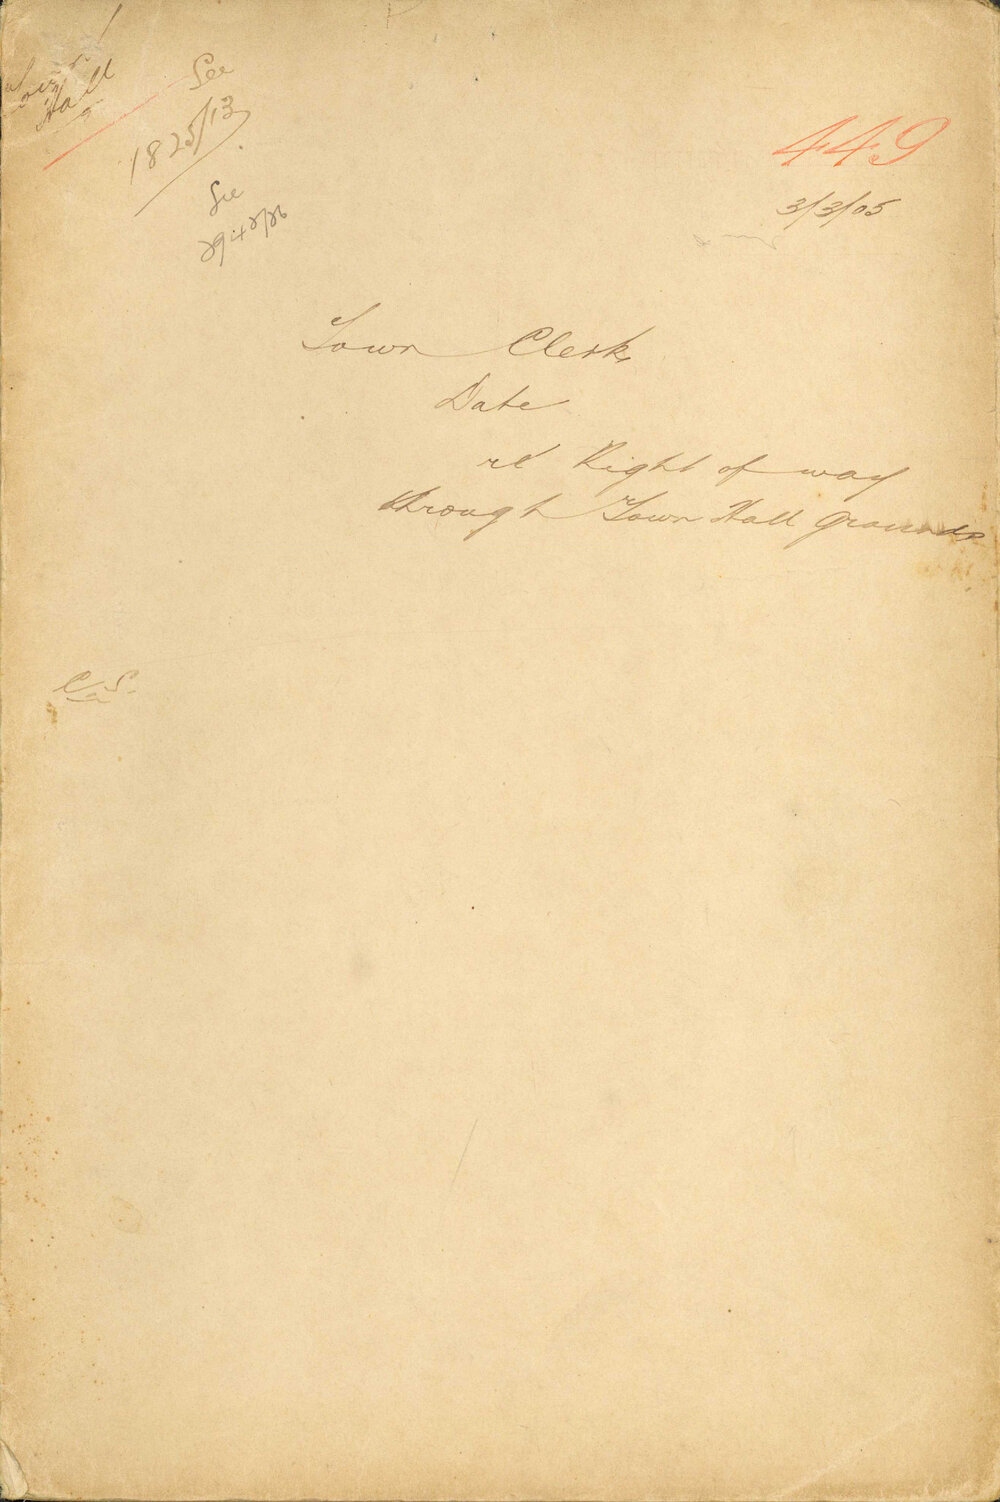 Town
Hall
See
1825/13
See
2942/26
449
3/3/05
Town Clerk
Date
re Right of way
through Town Hall Grounds
C.S.